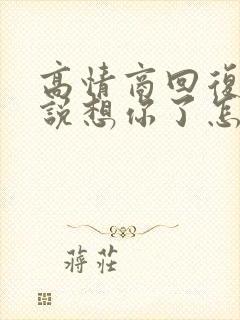 高情商回復
說想你了怎
蔣莊